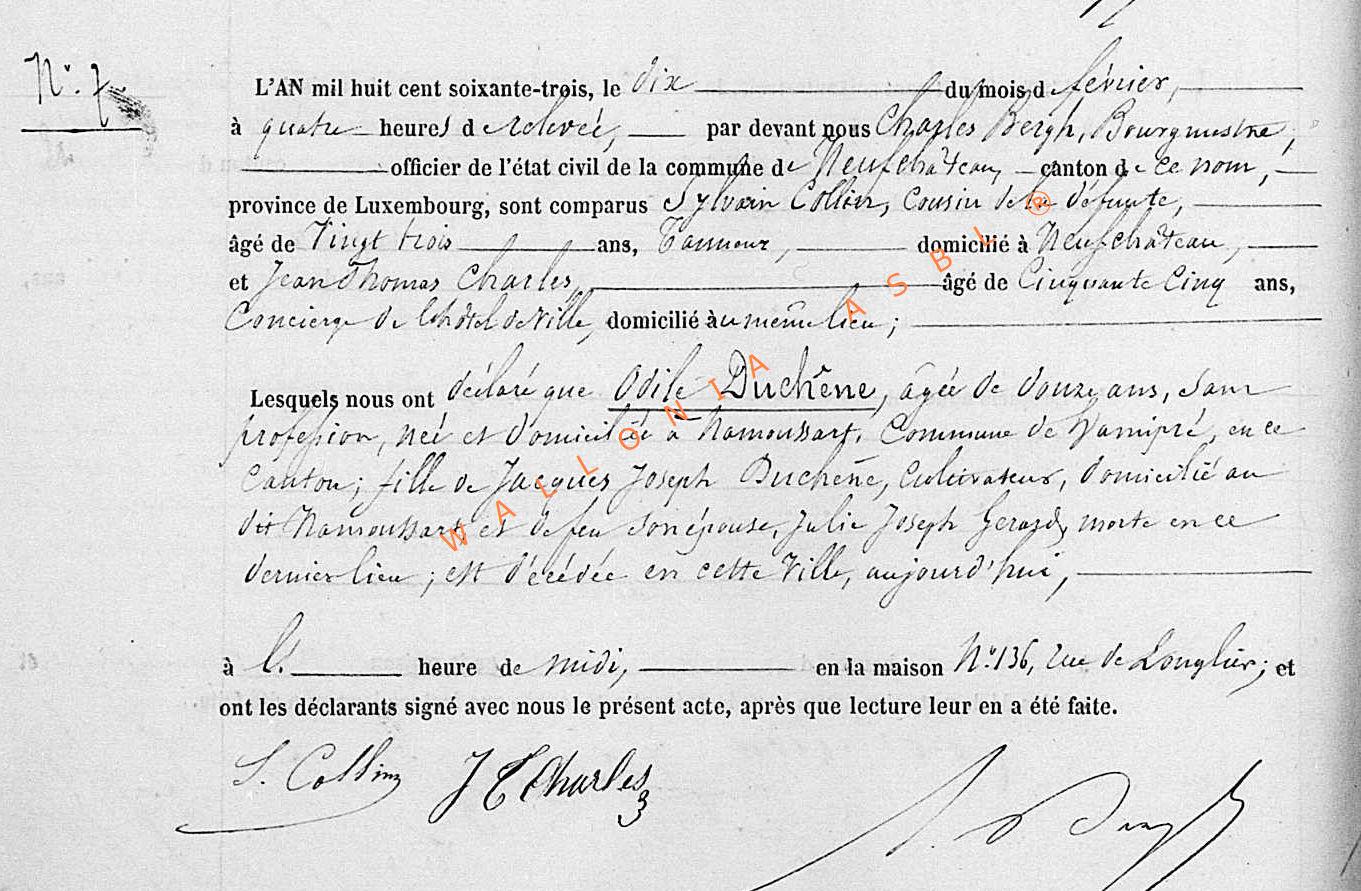 N.° 7
L'AN mil huit cent soixante-trois, le dix du mois de février,
à quatre heures de relevée, par devant nous Charles Bergh, Bourgmestre,
officier de l'état civil de la commune de Neufchâteau, canton de ce nom,
province de Luxembourg, sont comparus Sylvain Collin, Cousin de la défunte,
âgé de Vingt trois ans, Tanneur, domicilié à Neufchâteau,
et Jean Thomas Charles, âgé de Cinquante Cinq ans,
Concierge de l'hôtel de Ville, domicilié au même lieu;
Lesquels nous ont déclaré que Odile Duchêne, âgée de douze ans, sans
profession, née et domiciliée à Namoussart, Commune de Hamipré, en ce
Canton; fille de Jacques Joseph Duchêne, Cultivateur, domicilié au
dit Namoussart et de feu son épouse, Julie Joseph Gerard, morte en ce
dernier lieu; est décédée en cette Ville, aujourd'hui,
à l'. heure de midi, en la maison N.° 136, rue de Longlier; et
ont les déclarants signé avec nous le présent acte, après que lecture leur en a été faite.
S. Collin J T Charles
WALLONIA ASBL ®